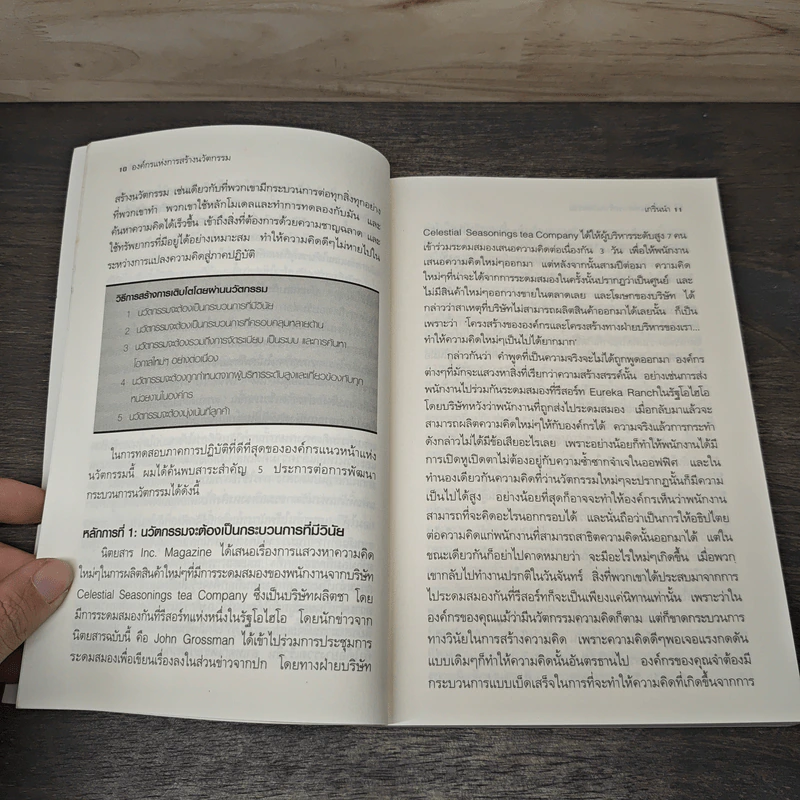 10 องค์กรแห่งการสร้างนวัตกรรม
สร้างนวัตกรรม เช่นเดียวกับที่พวกเขามีกระบวนการต่อทุกสิ่งทุกอย่าง
ที่พวกเขาทำ พวกเขาใช้หลักโมเดลและทำการทดลองกับมัน และ
ค้นหาความคิดได้เร็วขึ้น เข้าถึงสิ่งที่ต้องการด้วยความชาญฉลาด และ
ใช้ทรัพยากรที่มีอยู่ได้อย่างเหมาะสม ทำให้ความคิดดีๆไม่หายไปใน
ระหว่างการแปลงความคิดสู่ภาคปฏิบัติ
วิธีการสร้างการเติบโตโดยผ่านนวัตกรรม
1 นวัตกรรมจะต้องเป็นกระบวนการที่มีวินัย
2 นวัตกรรมจะต้องเป็นกระบวนการที่ครอบคลุมหลายด้าน
3 นวัตกรรมจะต้องรวมถึงการจัดระเบียบ เป็นระบบ และการค้นหา
โอกาสใหม่ๆ อย่างต่อเนื่อง
4 นวัตกรรมจะต้องถูกกำหนดจากผู้บริหารระดับสูงและเกี่ยวข้องกับทุก
หน่วยงานในองค์กร
5 นวัตกรรมจะต้องมุ่งเน้นที่ลูกค้า
ในการทดสอบภาคการปฏิบัติที่ดีที่สุดขององค์กรแนวหน้าแห่ง
นวัตกรรมนี้ ผมได้ค้นพบสาระสำคัญ 5 ประการต่อการพัฒนา
กระบวนการนวัตกรรมได้ดังนี้
หลักการที่ 1: นวัตกรรมจะต้องเป็นกระบวนการที่มีวินัย
นิตยสาร Inc. Magazine ได้เสนอเรื่องการแสวงหาความคิด
ใหม่ๆในการผลิตสินค้าใหม่ๆที่มีการระดมสมองของพนักงานจากบริษัท
Celestial Seasonings tea Company ซึ่งเป็นบริษัทผลิตชา โดย
มีการระดมสมองกันที่รีสอร์ทแห่งหนึ่งในรัฐโอไฮโอ โดยนักข่าวจาก
นิตยสารฉบับนี้ คือ John Grossman ได้เข้าไปร่วมการประชุมการ
ระดมสมองเพื่อเขียนเรื่องลงในส่วนข่าวจากปก โดยทางฝ่ายบริษัท
เกริ่นนำ 11
Celestial Seasonings tea Company ได้ให้ผู้บริหารระดับสูง 7 คน
เข้าร่วมระดมสมองเสนอความคิดต่อเนื่องกัน 3 วัน เพื่อให้พนักงาน
เสนอความคิดใหม่ๆออกมา แต่หลังจากนั้นสามปีต่อมา ความคิด
ใหม่ๆที่น่าจะได้จากการระดมสมองในครั้งนั้นปรากฏว่าเป็นศูนย์ และ
ไม่มีสินค้าใหม่ๆออกวางขายในตลาดเลย และโฆษกของบริษัท ได้
กล่าวว่าสาเหตุที่บริษัทไม่สามารถผลิตสินค้าออกมาได้เลยนั้น ก็เป็น
เพราะว่า 'โครงสร้างขององค์กรและโครงสร้างทางฝ่ายบริหารของเรา...
ทำให้ความคิดใหม่ๆเป็นไปได้ยากมาก'
กล่าวกันว่า คำพูดที่เป็นความจริงจะไม่ได้ถูกพูดออกมา องค์กร
ต่างๆที่มักจะแสวงหาสิ่งที่เรียกว่าความสร้างสรรค์นั้น อย่างเช่นการส่ง
พนักงานไปร่วมกันระดมสมองที่รีสอร์ท Eureka Ranchในรัฐโอไฮโอ
โดยบริษัทหวังว่าพนักงานที่ถูกส่งไประดมสมอง เมื่อกลับมาแล้วจะ
สามารถผลิตความคิดใหม่ๆให้กับองค์กรได้ ความจริงแล้วการกระทำ
ดังกล่าวไม่ได้มีข้อเสียอะไรเลย เพราะอย่างน้อยก็ทำให้พนักงานได้มี
การเปิดหูเปิดตาไม่ต้องอยู่กับความซ้ำซากจำเจในออฟฟิศ และใน
ทำนองเดียวกันความคิดที่ว่านวัตกรรมใหม่ๆจะปรากฏนั้นก็มีความ
เป็นไปได้สูง อย่างน้อยที่สุดก็อาจจะทำให้องค์กรเห็นว่าพนักงาน
สามารถที่จะคิดอะไรนอกกรอบได้ และนั่นถือว่าเป็นการให้อธิปไตย
ต่อความคิดแก่พนักงานที่สามารถสาธิตความคิดนั้นออกมาได้ แต่ใน
ขณะเดียวกันก็อย่าไปคาดหมายว่า จะมีอะไรใหม่ๆเกิดขึ้น เมื่อพวก
เขากลับไปทำงานปรกติในวันจันทร์ สิ่งที่พวกเขาได้ประสบมาจากการ
ไประดมสมองกันที่รีสอร์ทก็จะเป็นเพียงแค่นิทานเท่านั้น เพราะว่าใน
องค์กรของคุณแม้ว่ามีนวัตกรรมความคิดก็ตาม แต่ก็ขาดกระบวนการ
ทางวินัยในการสร้างความคิด เพราะความคิดดีๆพอเจอแรงกดดัน
แบบเดิมๆก็ทำให้ความคิดนั้นอันตรธานไป องค์กรของคุณจำต้องมี
กระบวนการแบบเบ็ดเสร็จในการที่จะทำให้ความคิดที่เกิดขึ้นจากการ